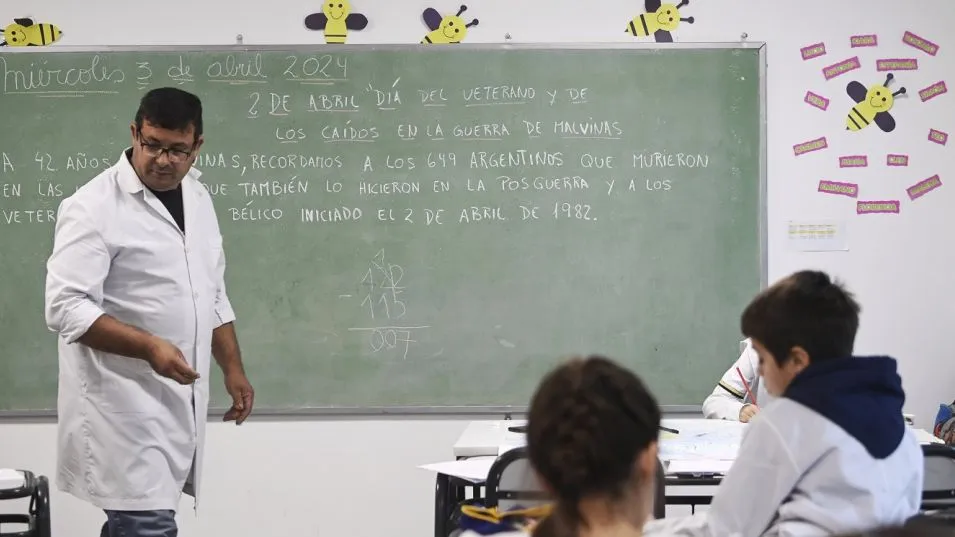 miércoles 3 de abril 2024
2 DE ABRIL "DÍA DEL VETERANO Y DE
LOS CAÍDOS EN LA GUERRA DE MALVINAS
A 42 AÑOS INAS, RECORDAMOS A LOS 649 ARGENTINOS QUE MURIERON
EN LAS QUE TAMBIÉN LO HICIERON EN LA POSGUERRA Y A LOS
VETER BÉLICO INICIADO EL 2 DE ABRIL DE 1982.
1
122
- 115
007